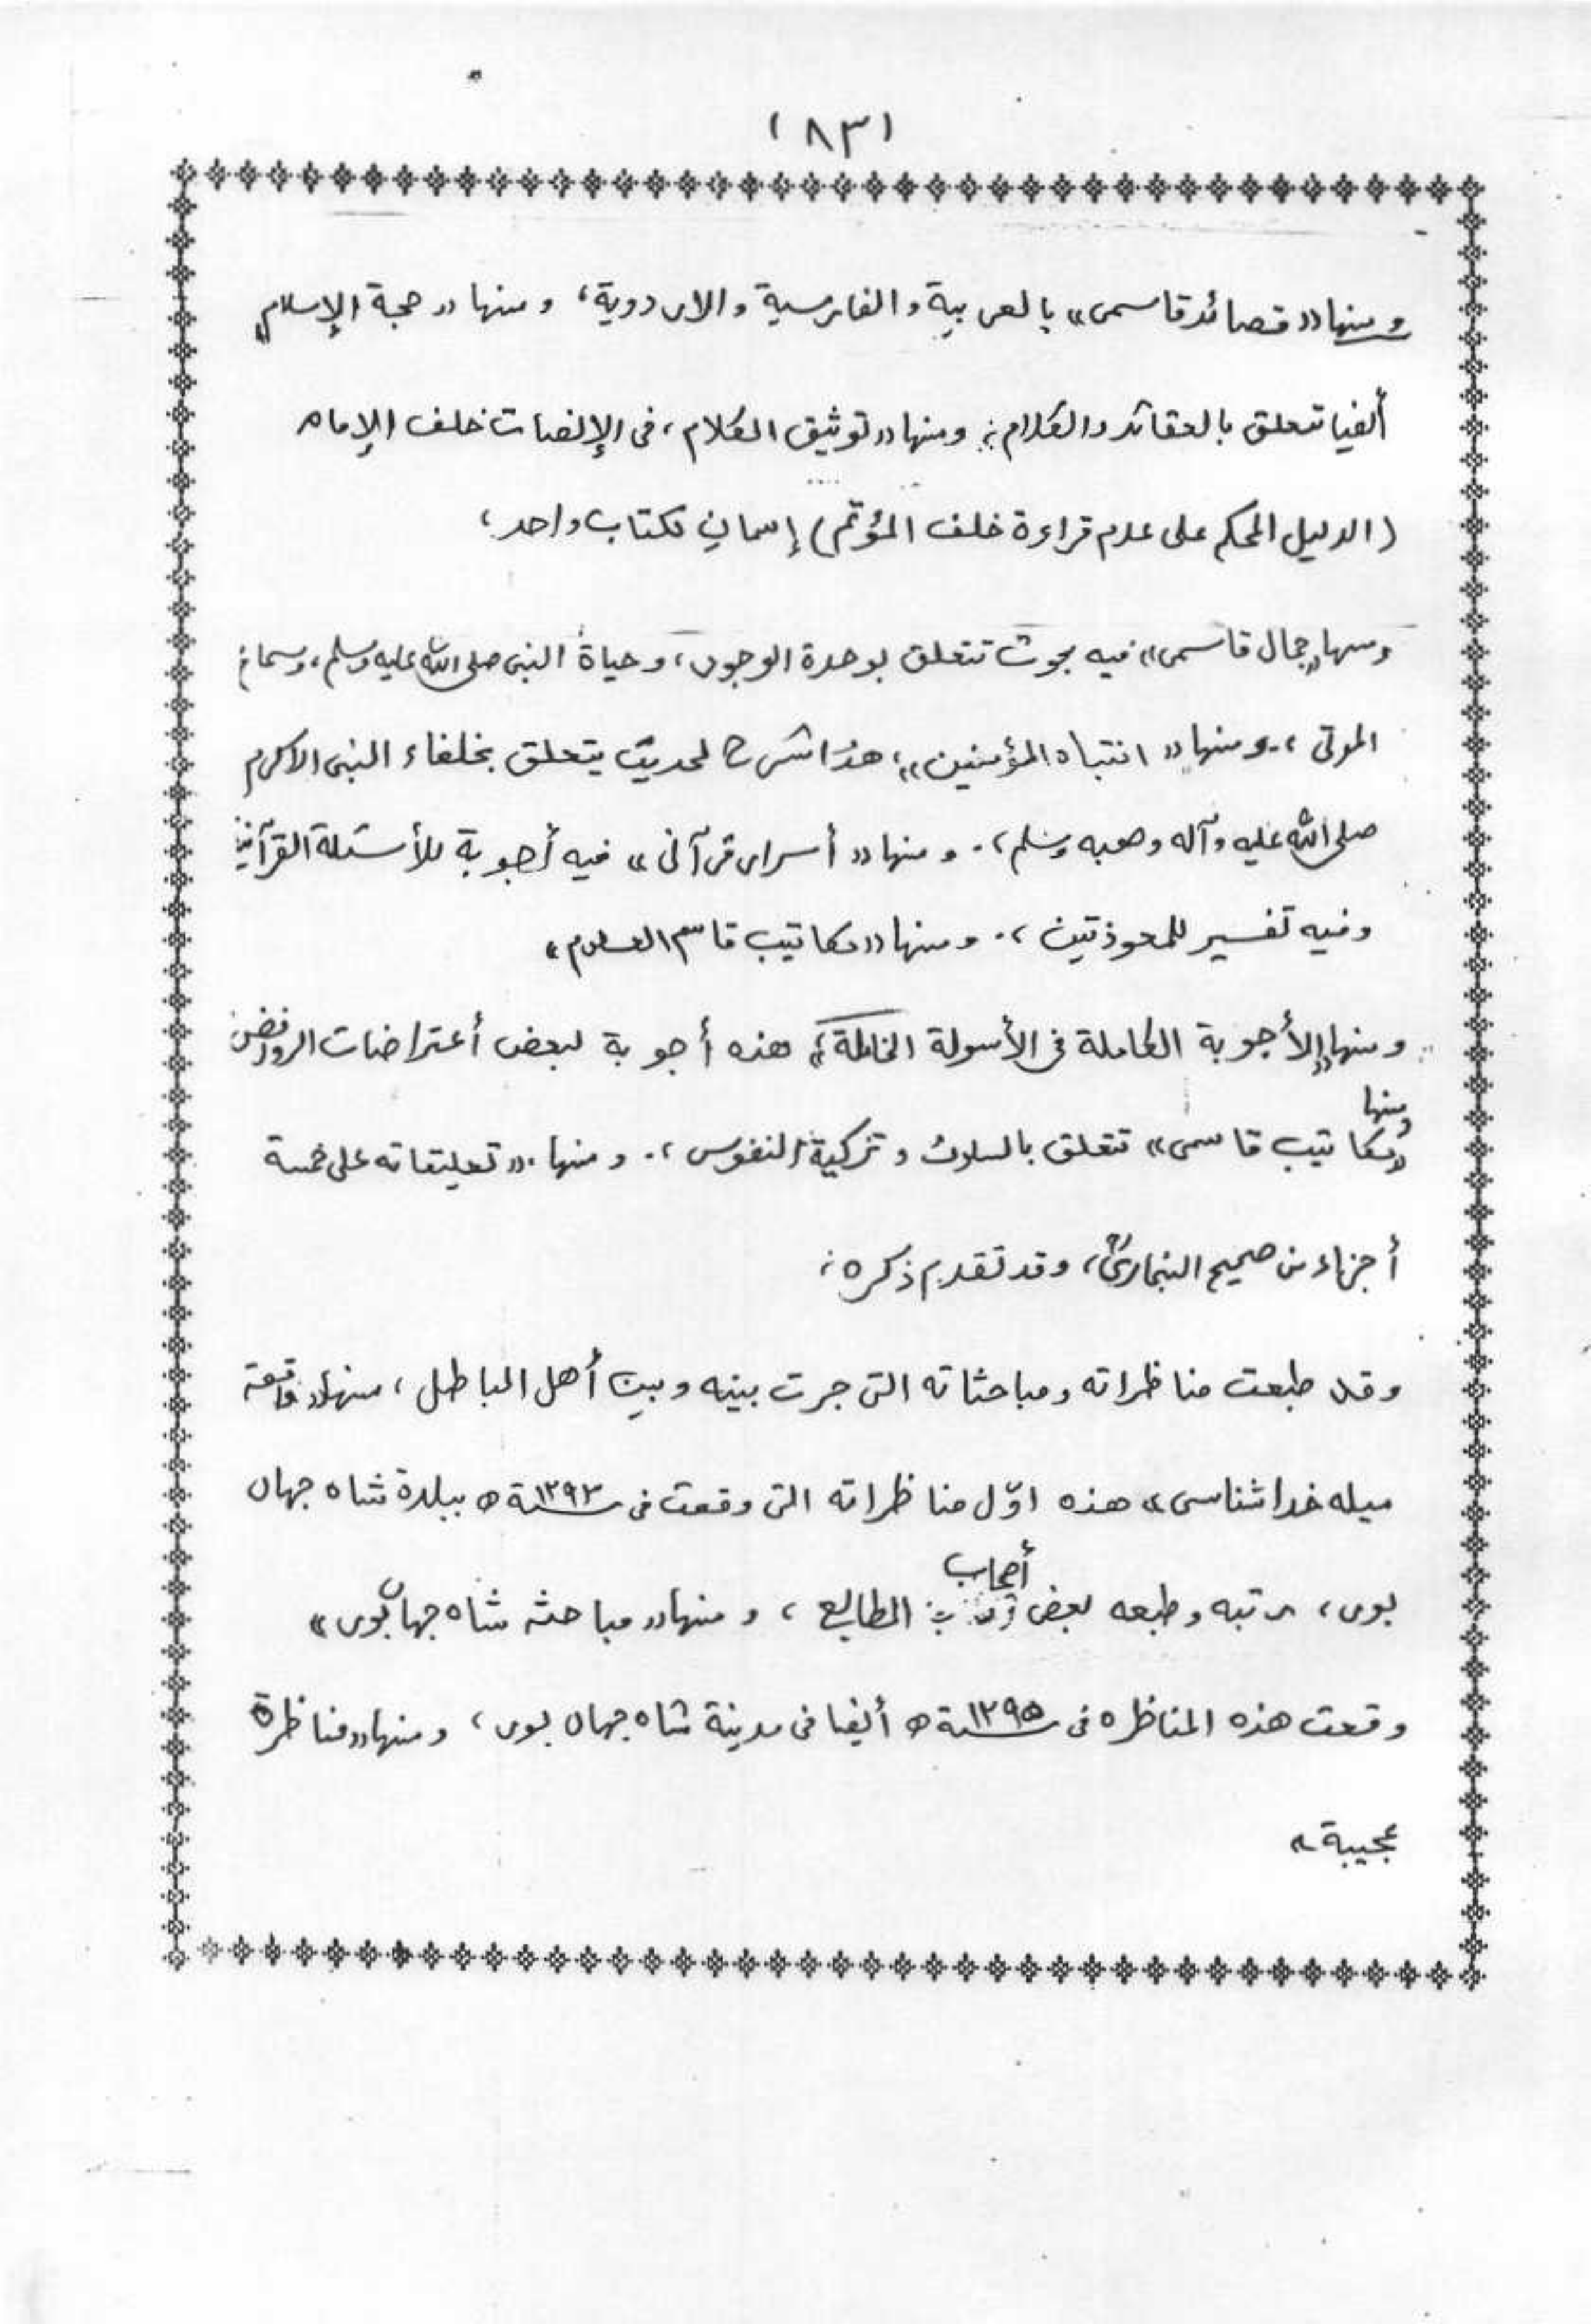 (٨٣)
ومنها «قصائد قاسمى» بالعربية والفارسية والاردوية، ومنها «حجة الإسلام»
أيضا تتعلق بالعقائد والكلام؛ ومنها «توثيق الكلام، فى الإنصات خلف الإمام
(الدليل المحكم على عدم قراءة خلف المؤتم) إسمان لكتاب واحد،
ومنها «جمال قاسمى» فيه بحوث تتعلق بوحدة الوجود، وحياة النبى صلى الله عليه وسلم، وسماع
الموتى،. ومنها «انتباه المؤمنين»؛ هذا شرح لحديث يتعلق بخلفاء النبى الاكرم
صلى الله عليه وآله وصحبه وسلم،. ومنها «أسرار قرآنى» فيه أجوبة للأسئلة القرآنية
وفيه تفسير للمعوذتين،. ومنها «مكاتيب قاسم العلوم»
ومنها «الأجوبة الكاملة فى الأسولة الخاملة»؛ هذه أجوبة لبعض أعتراضات الروافض
ومنها
«مكاتيب قاسمى» تتعلق بالسلوك وتزكية النفوس،. ومنها. «تعليقاته على خمسة
أجزاء من صحيح البخارىؒ، وقد تقدم ذكره؛
وقد طبعت مناظراته ومباحثاته التى جرت بينه وبين أهل الباطل، منها «واقعة
ميله خدا شناسى» هذه اوّل مناظراته التى وقعت فى سنة ١٢٩٣ه ببلدة شاه جهان
بور، رتبه وطبعه بعض أصحاب المطابع، ومنها «مباحثه شاه جهان بورى»
وقعت هذه المناظره فى سنة ١٢٩٥ه أيضا فى مدينة شاه جهان بور، ومنها «مناظرة
عجيبة»